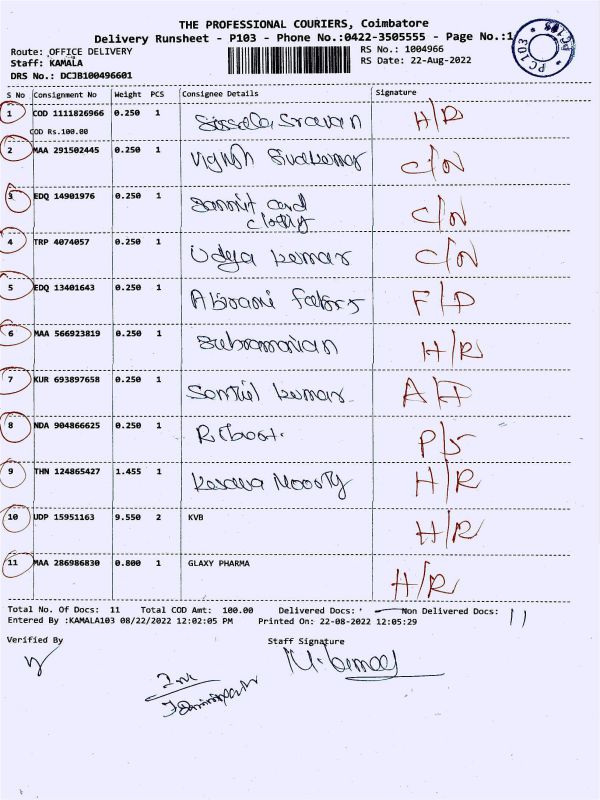 THE PROFESSIONAL COURIERS, Coimbatore
Delivery Runsheet - P103 - Phone No.:0422-3505555 - Page No.:1
PC103 PC103
Route: OFFICE DELIVERY
RS No.: 1004966
Staff: KAMALA
RS Date: 22-Aug-2022
DRS No.: DCJB100496601
S No Consignment No Weight PCS Consignee Details Signature
1 COD 1111826966 0.250 1 Sravan H/R
COD Rs.100.00
2 MAA 291502445 0.250 1 C/N
3 EDQ 14901976 0.250 1 and C/N
4 TRP 4074057 0.250 1 Udya kumar C/N
5 EDQ 13401643 0.250 1 F/D
6 MAA 566923819 0.250 1 Subramanian H/R
7 KUR 693897658 0.250 1 kumar
8 NDA 904866625 0.250 1
9 THN 124865427 1.455 1 H/R
10 UDP 15951163 9.550 2 KVB H/R
11 MAA 286986830 0.800 1 GLAXY PHARMA H/R
Total No. Of Docs: 11 Total COD Amt: 100.00 Delivered Docs: Non Delivered Docs: 11
Entered By :KAMALA103 08/22/2022 12:02:05 PM Printed On: 22-08-2022 12:05:29
Verified By Staff Signature